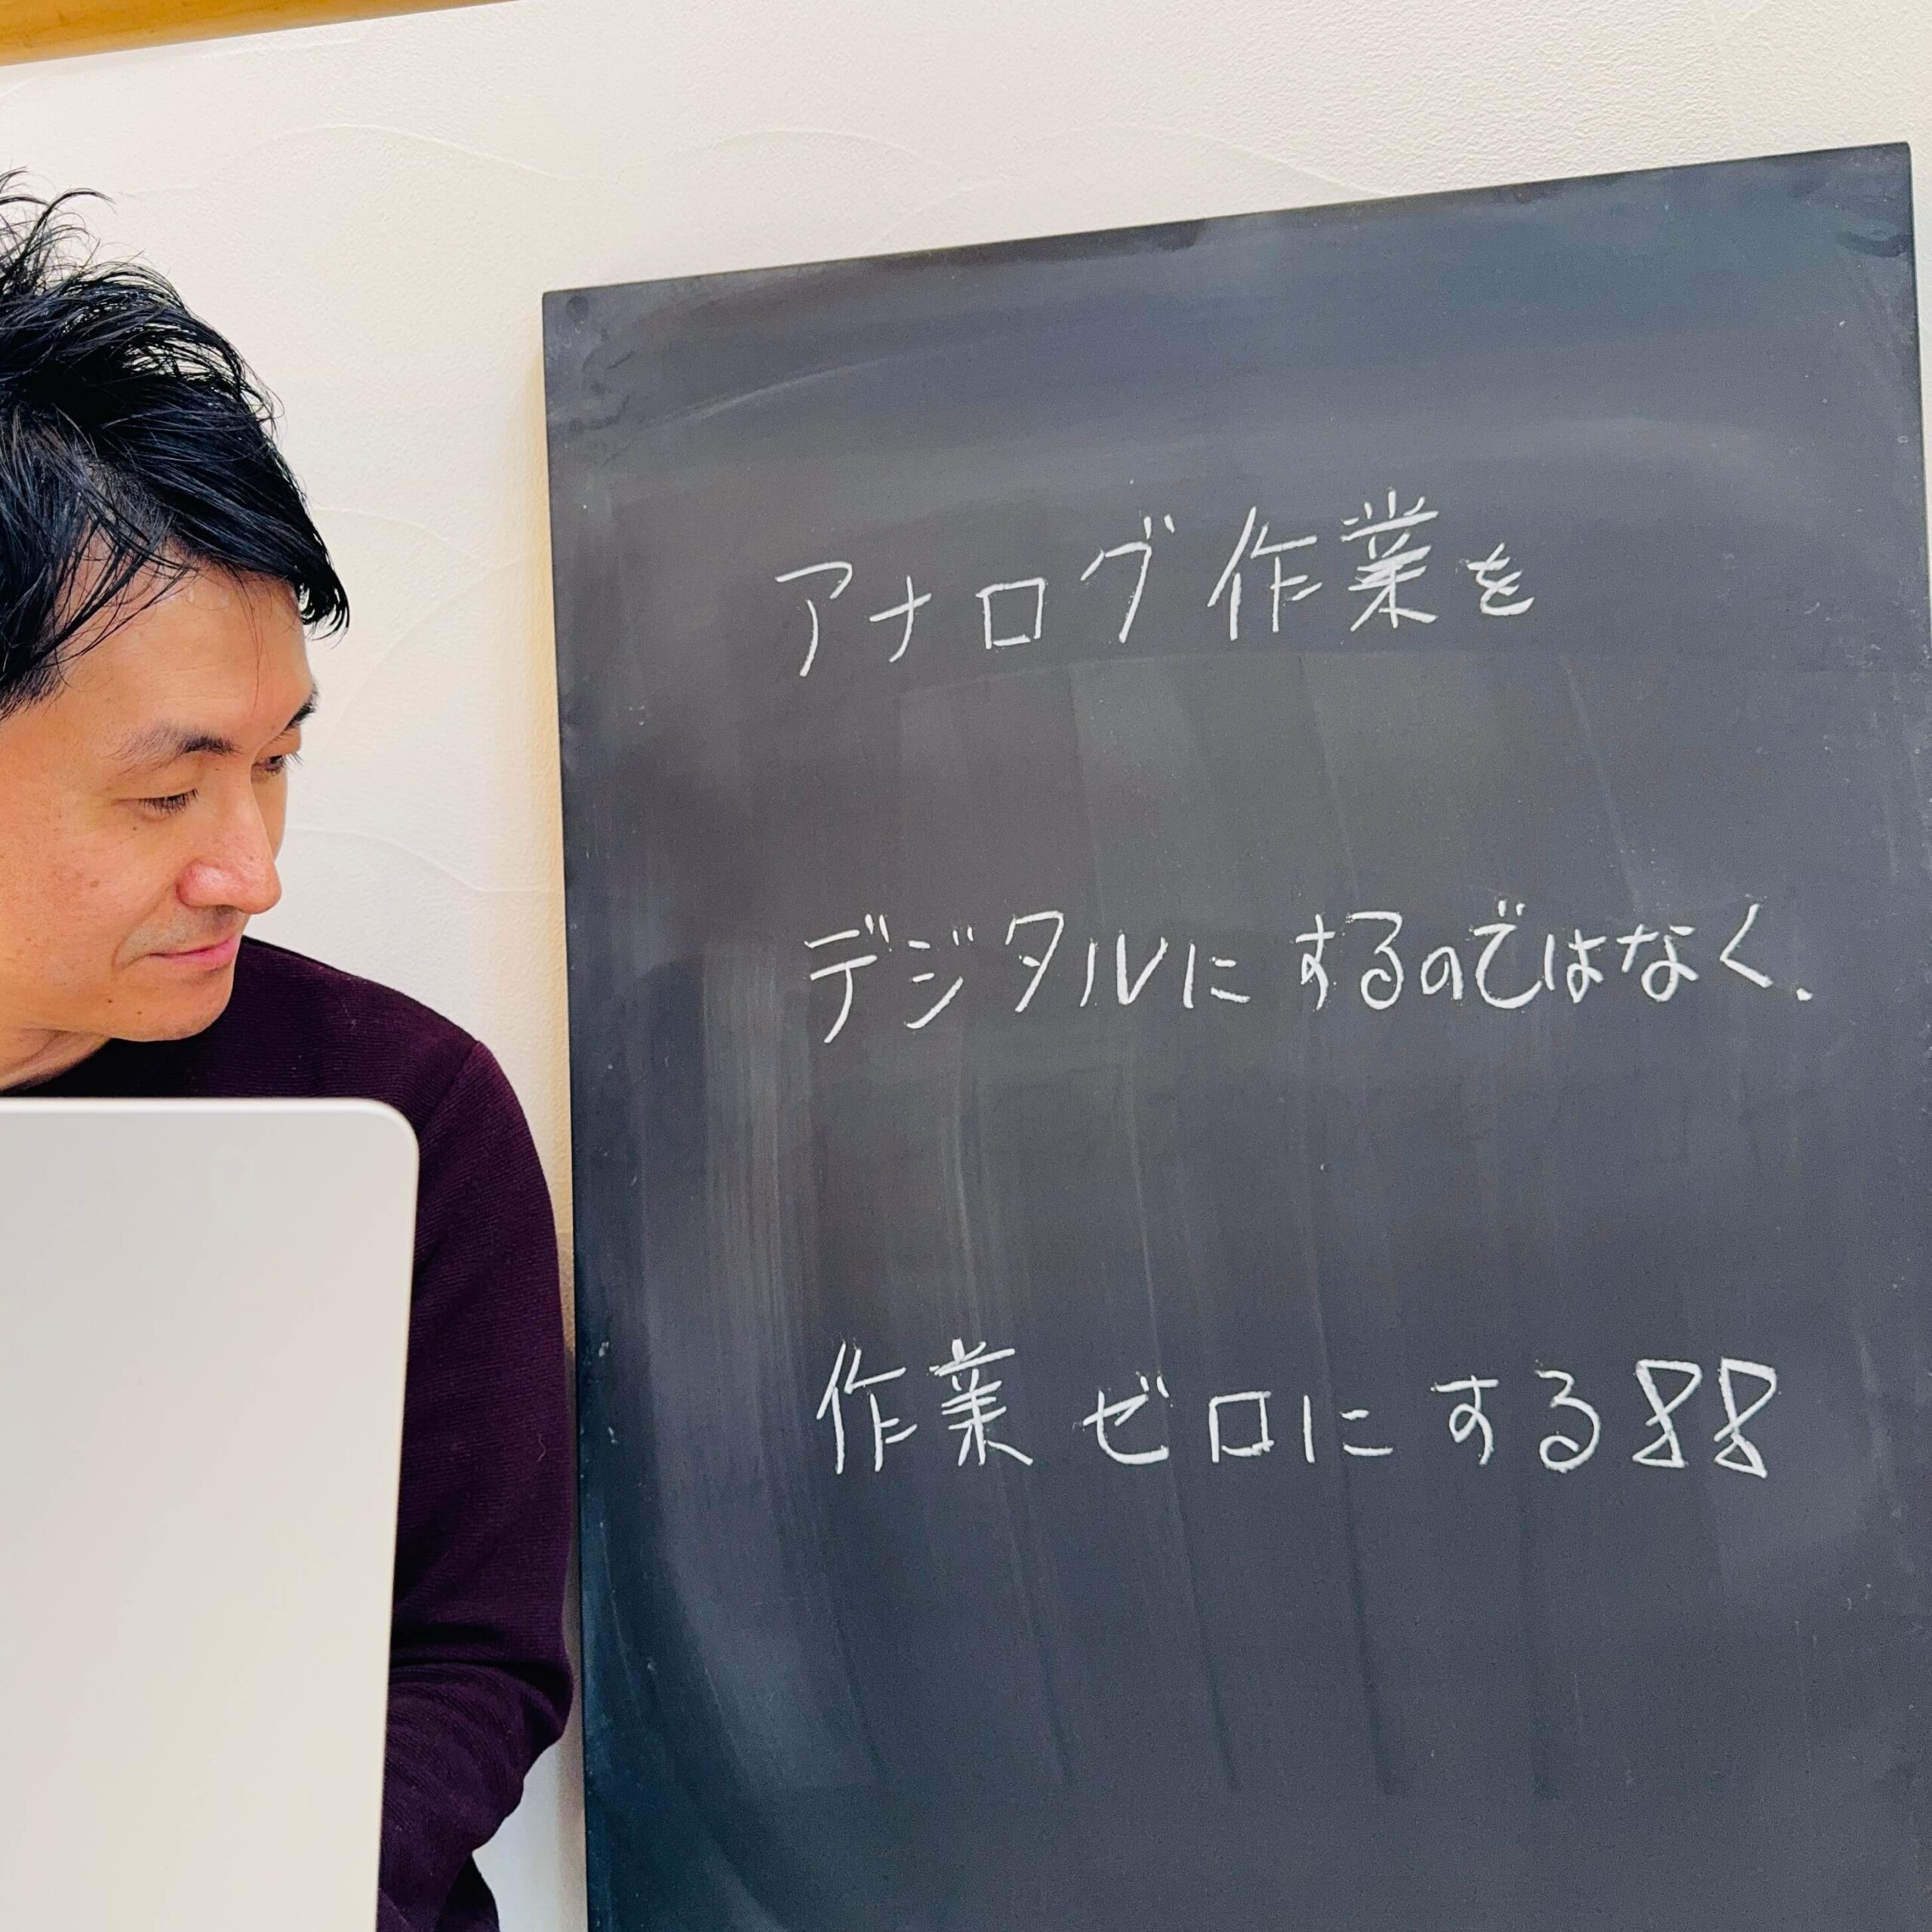 アナログ作業を
デジタルにするのではなく.
作業ゼロにする!!